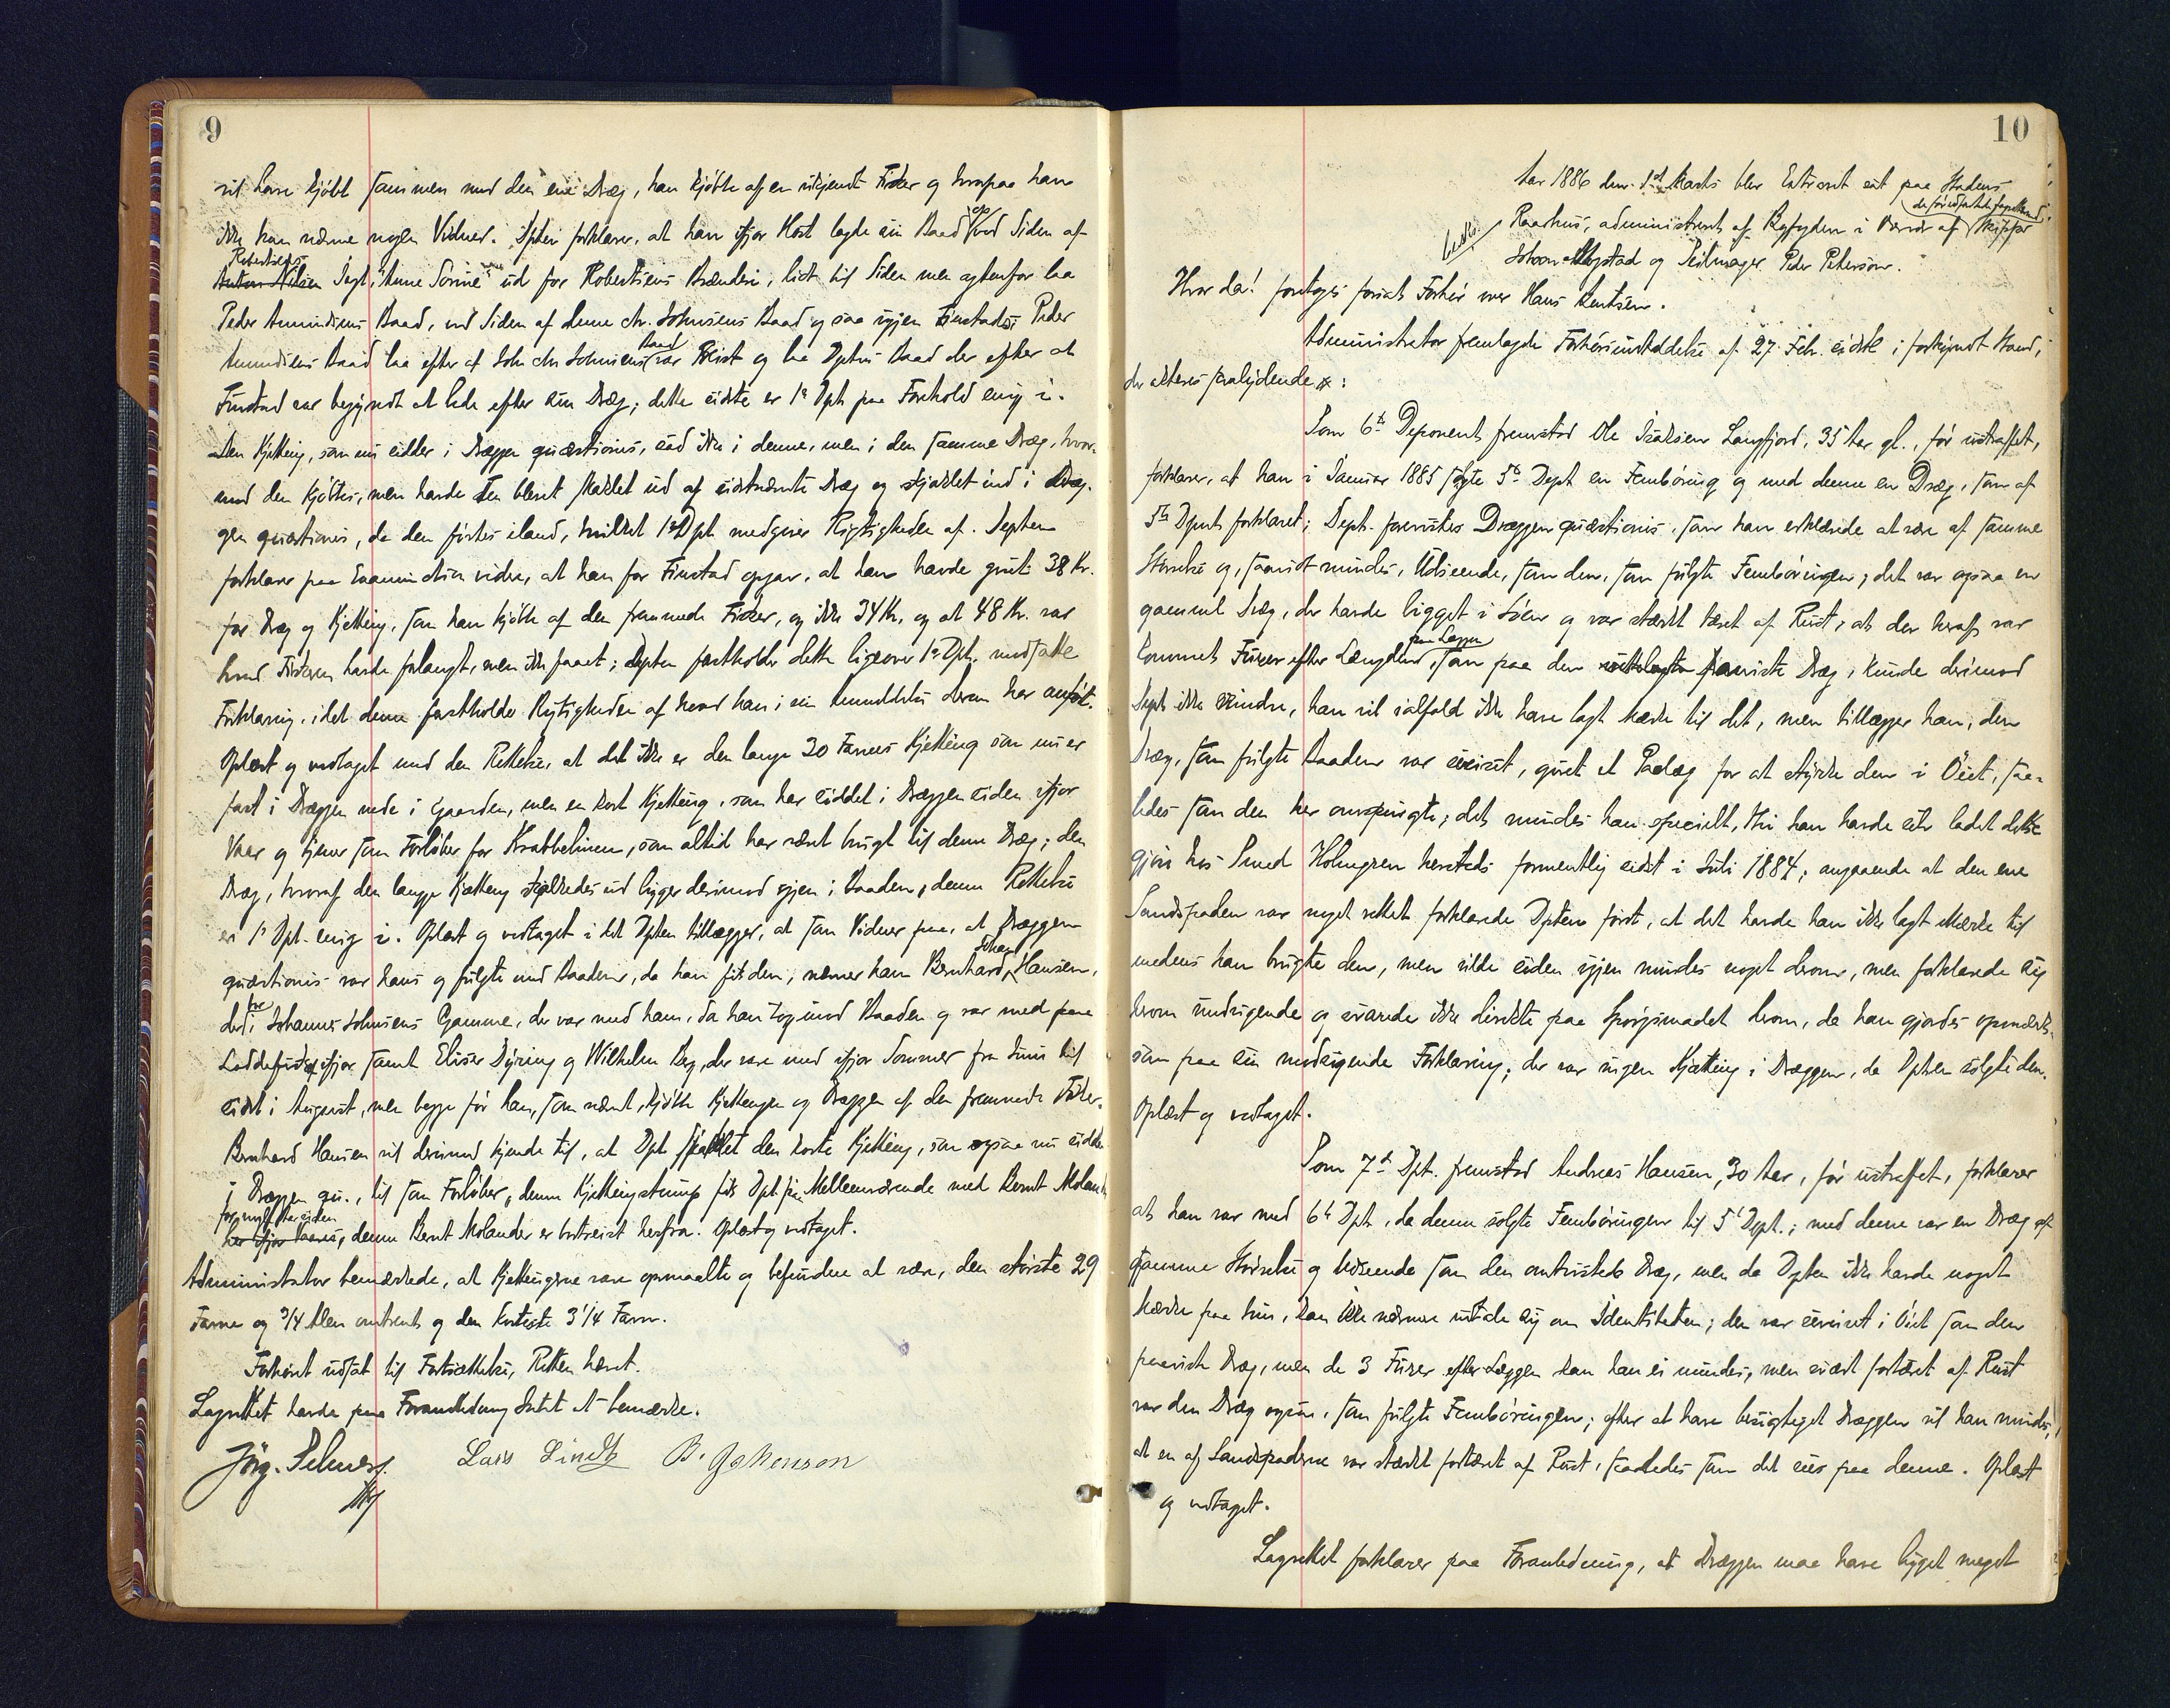 9
vil have kjöbt sammen med den ene Dræg, han kjöbte af en ukjendt Fisker og hvorpaa han
ikke kan nævne nogen Vidner. Dpten forklarer, at han ifjor Höst lagde sin Baad op ved Siden af
Robertsens
Anton Nilsen Jagt, "Anne Sorine" ud for Robertsens Brænderi, lidt til Siden men agtenfor laa
Peder Amundsens Baad, ved Siden af denne Chr. Johnsens Baad og saa igjen Finstads; Peder
Amundsens Baad laa efter at Joh. Chr. Johnsens Baad var Reist og laa Dptens Baad der efter at
Finstad var begyndt at lede efter sin Dræg; dette sidste er 1ste Dpt paa Forehold enig i.
Den Kjetting, som nu sidder i Dræggen quæstionis, sad ikke i denne, men i den samme Dræg, hvor-
med den kjöbtes, men havde den blevet skaklet ud af sidstnævnte Dræg og skjaklet ind i Dræg-
gen quæstionis, da den förtes iland, hvilket 1ste Dpt medgiver Rigtigheden af. Depten
forklarer paa Examination videre, at han for Finstad opgav, at han havde givet 38 Kr.
for Dræg og Kjetting, som han kjöbte af den fremmede Fisker, og ikke 34 Kr, og at 48 Kr. var
hvad Fiskeren havde forlangt, men ikke faaet; Depten fastholder dette ligeover 1ste Dpt. modsatte
Forklaring, idet denne fastholder Rigtigheden af hvad han i sin Anmeldelse derom har anfört.
Oplæst og vedtaget med den Rettelse, at det ikke er den lange 30 Favnes Kjetting som nu er
fast i Dræggen nede i Gaarden, men en kort Kjetting, som har siddet i Dræggen siden ifjor
Vaar og tjener som Forlöber for Krabbelinen, som altid har været brugt til denne Dræg; den
Dræg, hvoraf den lange Kjetting skjakledes ud ligger derimod igjen i Baaden, denne Rettelse
er 1ste Dpt. enig i. Oplæst og vedtaget i det Dpten tillægger, at som Vidner paa, at Dræggen
quæstionis var hans og fulgte med Baaden, da han fik den, nævner han Bernhard Johan Hansen,
der bor i Johannes Johnsens Gamme, der var med ham, da han tog imod Baaden og var med paa
Loddefisket ifjor samt Eliser Dyring og Wilhelm Berg, der vare med ifjor Sommer fra Juni til
sidst i August, men begge för han, som nævnt, kjöbte Kjettingen og Dræggen af den fremmede Fisker.
Bernhard Hansen vil derimod kjende til, at Dpt skjaklet den korte Kjetting, som ogsaa nu sidder
i Dræggen qu., til som Forlöber, denne Kjettingstump fik Dpt paa Mellemværende med Bernt Moland
for nylig Aar siden
her ifjor Vaares, denne Bernt Molander er bortreist herfra. Oplæst og vedtaget.
Administrator bemærkede, at Kjettingerne vare opmaalte og befundne at være, den störste 29
Favne og 3/4 Alen omtrent og den korteste 3 1/4 Favn.
Forhöret udsat til Fortsættelse, Retten hævet.
Lagrettet havde paa Foranledning Intet at bemærke.
Jörg. Selmer
Lars Lind B. Johenson

10
Aar 1886 den 1st Marts blev Extraret sat paa Stadens
Raadhus, administreret af Byfogden i Overvær af de foreidfæstede Lagrettesmænd Skipper
Johan Mystad og Seilmager Peder Peterson.
Hvor da! foretoges forsat Forhör over Hans Bentsen.
Administrator fremlagde Forhörsanmeldelse af 27 Feb. sidstl i forkyndt Stand,
der akteres saalydende:
Som 6te Deponent fremstod Ole Isaksen Langfjord, 35 Aar gl., för ustraffet,
forklarer, at han i Januar 1885 solgte 5te Dept en Fembøring og med denne en Dræg, som af
5te Dpent forklaret; Dept. forevistes Dræggen quæstionis, som han erklærede at være af samme
Störrelse og, saavidt mindes, Udseende, som den, som fulgte Femböringen; det var ogsaa en
gammel Dræg, der havde ligget i Söen og var stærkt tæret af Rust, at der heraf var
kommet Furer efter Længden paa Læggen, som paa den paaviste Dræg, kunde derimod
Dept ikke erindre, han vil ialfald ikke have lagt Mærke til det, men tillægger han, den
Dræg, som fulgte Baaden var sveiset, givet et Paalæg for at styrke den i Öiet, saa-
ledes som den her omspurgte; det mindes han specielt, thi han havde selv ladet dette
gjöre hos Smed Holmgren hersteds formentlig sidst i Juli 1884; angaaende at den ene
Landspaden var noget rettet forklarede Dpten först, at det havde han ikke lagt Mærke til
medens han brugte den, men vilde siden igjen mindes noget derom, men forklarede sig
herom undvigende og svarede ikke direkte paa Spörgsmaalet herom, da han gjordes opmærk-
som paa sin modsigende Forklaring; der var ingen Kjetting i Dræggen, da Dpten solgte den.
Oplæst og vedtaget.
Som 7de Dpt. fremstod Andreas Hansen, 30 Aar, för ustraffet, forklarer
at han var med 6te Dpt, da denne solgte Femböringen til 5te Dpt.; med denne var en Dræg af
samme Störrelse og Udseende som den omtvistede Dræg, men da Dpten ikke havde noget
Mærke paa hin, kan ikke nærmere udtale sig om Identiteten; den var sveiset i Öiet som den
paaviste Dræg, men de 3 Furer efter Læggen kan han ei mindes, men svært fortæret af Rust
var den Dræg ogsaa, som fulgte Femböringen; efter at have besigtiget Dræggen vil han mindes,
at en af Landspaderne var stærkt fortæret af Rust, saaledes som det sees paa denne. Oplæst
og vedtaget.
Lagrettet forklarer paa Foranledning, at Dræggen maa have ligget meget